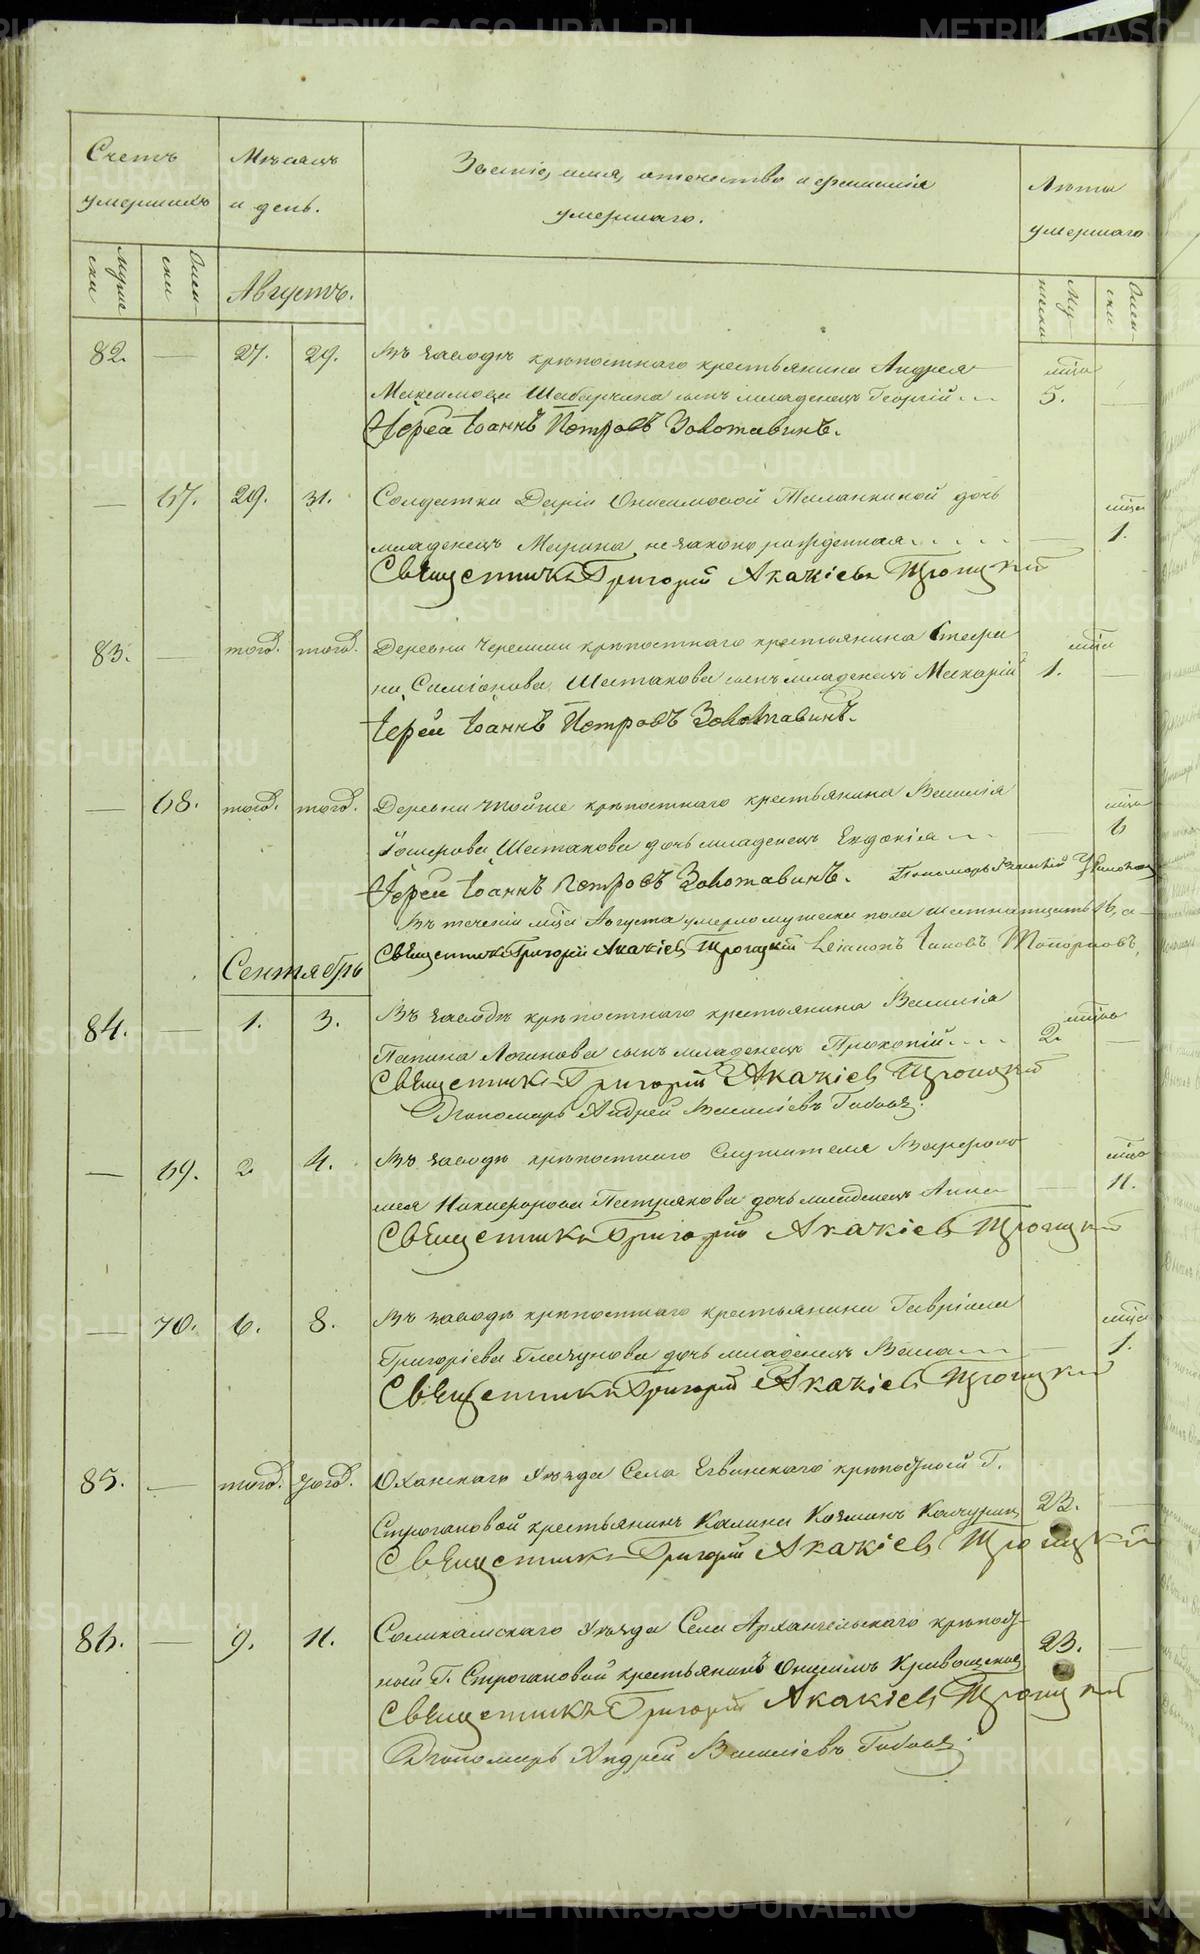 METRIKI.GASO-URAL.RU
Счетъ умершихъ
Мѣсяцъ и день.
Званіе, имя, отечество и фамилія умершаго.
Лѣта умершаго
Муже ски
Жен- ски
Августъ.
Му- жески
Жен- ски
82. — 27. 29. Въ заводѣ крѣпостнаго крестьянина Андрея мца
Максимова Шабаркина сынъ младенецъ Георгій 5. —
Іерей Іоаннъ Петровъ Золотавинъ.
— 67. 29. 31. Солдатки Даріи Онисимовой Таланкиной дочь мца
младенецъ Марина незаконорожденная — 1.
Священникъ Григорій Акакіевъ Троицкій
83. — тогож. тогож. Деревни Черемши крѣпостнаго крестьянина Стефа мца
на Симіонова Шестакова сынъ младенецъ Макарій 1. —
Іерей Іоаннъ Петровъ Золотавинъ.
— 68. тогож. тогож. Деревни тойже крѣпостнаго крестьянина Василія мца
Шестакова дочь младенецъ Евдокія — 6
Іерей Іоаннъ Петровъ Золотавинъ. Пономарь
Въ теченіи мца Августа умерло мужеска пола шестнатцать 16, а
Священникъ Григорій Акакіевъ Троицкій Топорковъ,
Сентябрь
84. — 1. 3. Въ заводѣ крѣпостнаго крестьянина Василія мца
Логинова сынъ младенецъ Прокопій 2. —
Священникъ Григорій Акакіевъ Троицкій
Пономарь Андрей Василіевъ
— 69. 2 4. Въ заводѣ крѣпостнаго Служителя Варфоло мца
мея Никифорова Пестрякова дочь младенецъ Анна — 11.
Священникъ Григорій Акакіевъ Троицкій
— 70. 6. 8. Въ заводѣ крѣпостнаго крестьянина Гавріила мца
Григоріева дочь младенецъ — 1.
Священникъ Григорій Акакіевъ Троицкій
85. — тогож. тогож. Оханскаго Уѣзда Села Егвинскаго крѣпостный Г.
Строгановой крестьянинъ Калина Козминъ Качуринъ 23. —
Священникъ Григорій Акакіевъ Троицкій
86. — 9. 11. Соликамскаго Уѣзда Села Архангельскаго крѣпост-
ный Г. Строгановой крестьянинъ Онисимъ 23. —
Священникъ Григорій Акакіевъ Троицкій
Пономарь Андрей Василіевъ